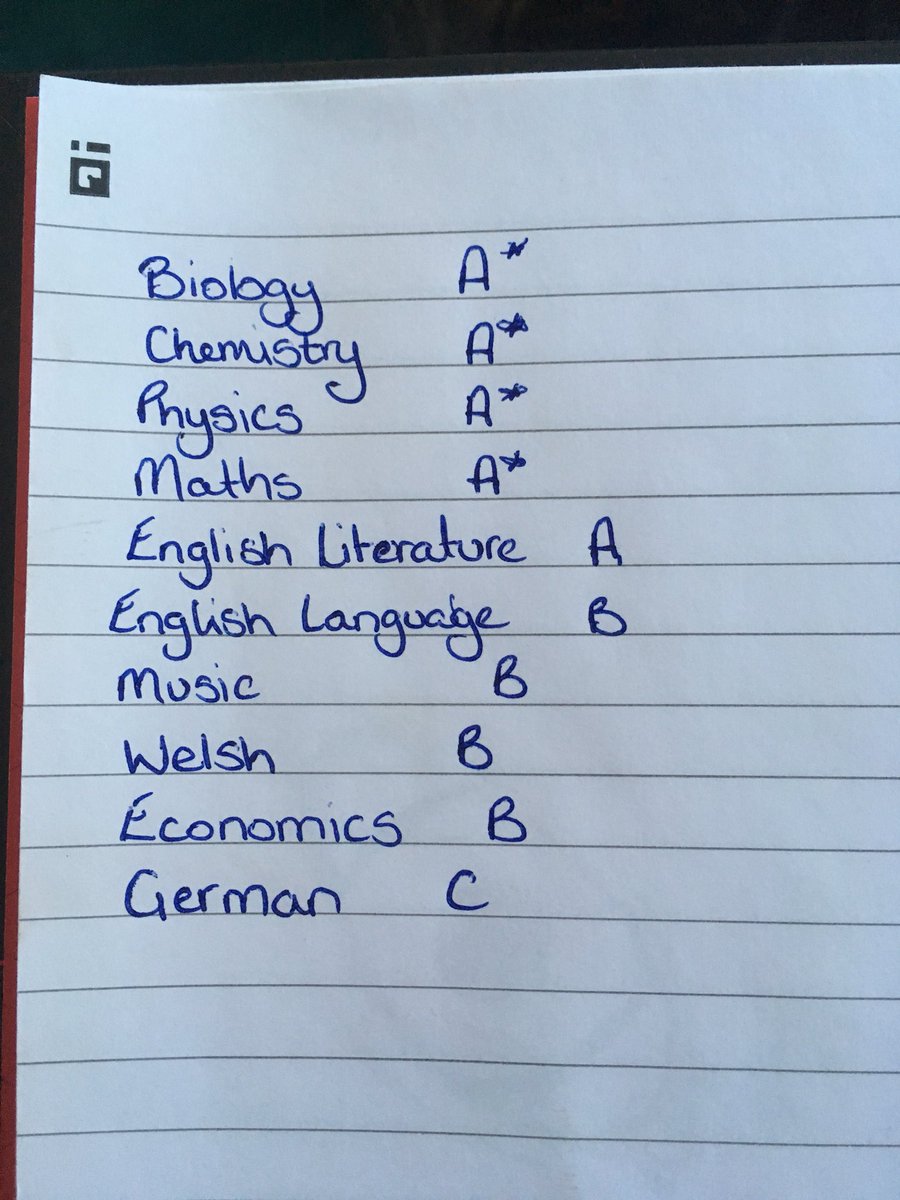 Qi
Biology A*
Chemistry A*
Physics A*
Maths A*
English Literature A
English Language B
Music B
Welsh B
Economics B
German C